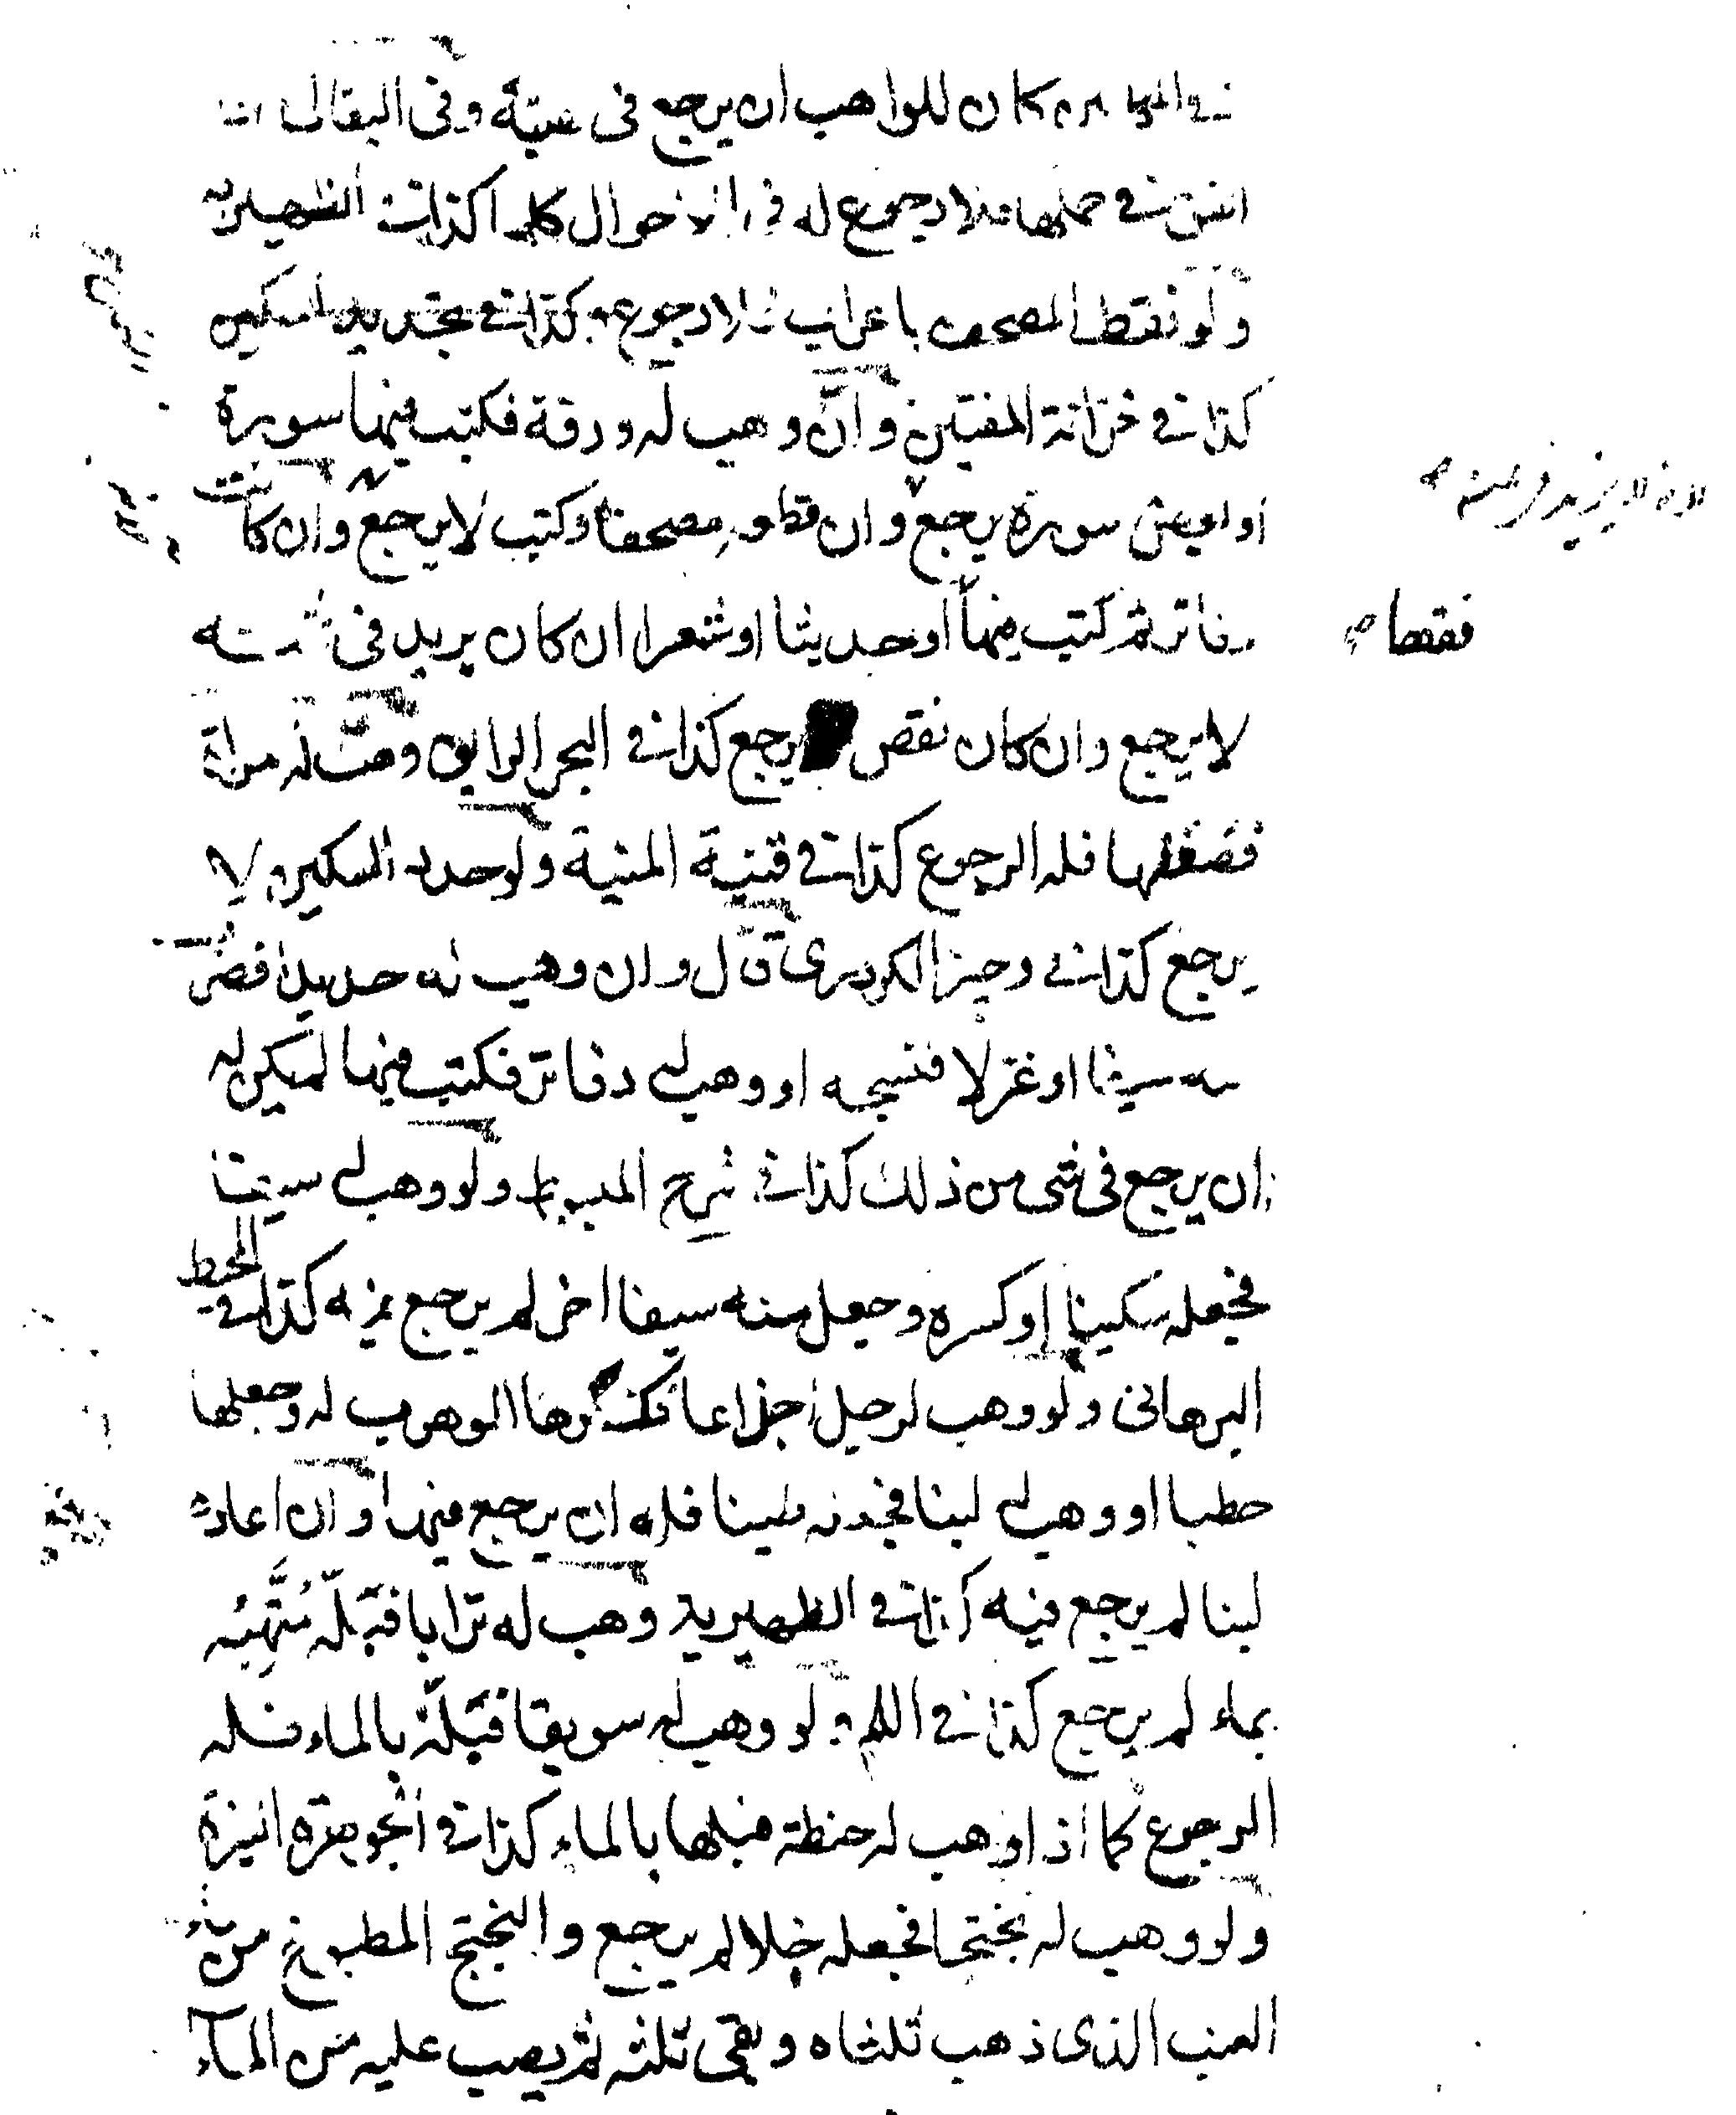 كان للواهب ان يرجع فى هبته وفى البقالى
انفق فى حملها فلا رجوع له فى الاحوال كلها كذا فى الظهيرية
ولو نقط المصحف باعراب فلا رجوع كذا فى تجديد السكين
كذا فى خزانة المفتين وان وهب له ورقة فكتب فيها سورة
او بعض سورة يرجع وان قطعه مصحفا وكتب لا يرجع وان كانت
دفاتر ثم كتب فيها او حديثا او شعرا ان كان يزيد فى ثمنه
فقها
لانه لا يزيد فى ثمنه
لا يرجع وان كان نقص يرجع كذا فى البحر الرايق وهب له مراة
فصقلها فله الرجوع كذا فى قنية المنية ولو حدد السكين لا
يرجع كذا فى وجيز الكردرى قال وان وهب له حديدا فضرب
سيفا او غزلا فنسجه او وهب له دفاتر فكتب فيها لم يكن له
ان يرجع فى شى من ذلك كذا فى شرح المبسوط ولو وهب له سيفا
فجعله سكينا او كسره وجعل منه سيفا اخر لم يرجع فيه كذا فى المحيط
البرهانى ولو وهب لرجل اجذاعا فكسرها الموهوب له وجعلها
حطبا او وهب له لبنا فجعله طينا فله ان يرجع فيها وان اعاده
لبنا لم يرجع فيه كذا فى الظهيرية وهب له ترابا فبله
بماء لم يرجع كذا فى ولو وهب له سويقا فبله بالماء فله
الرجوع كما اذا وهب له حنطة فبلها بالماء كذا فى الجوهرة النيرة
ولو وهب له بختجا فجعله خلا لم يرجع والبختج المطبوخ من ماء
العنب الذى ذهب ثلثاه وبقى ثلثه ثم يصب عليه من الماء